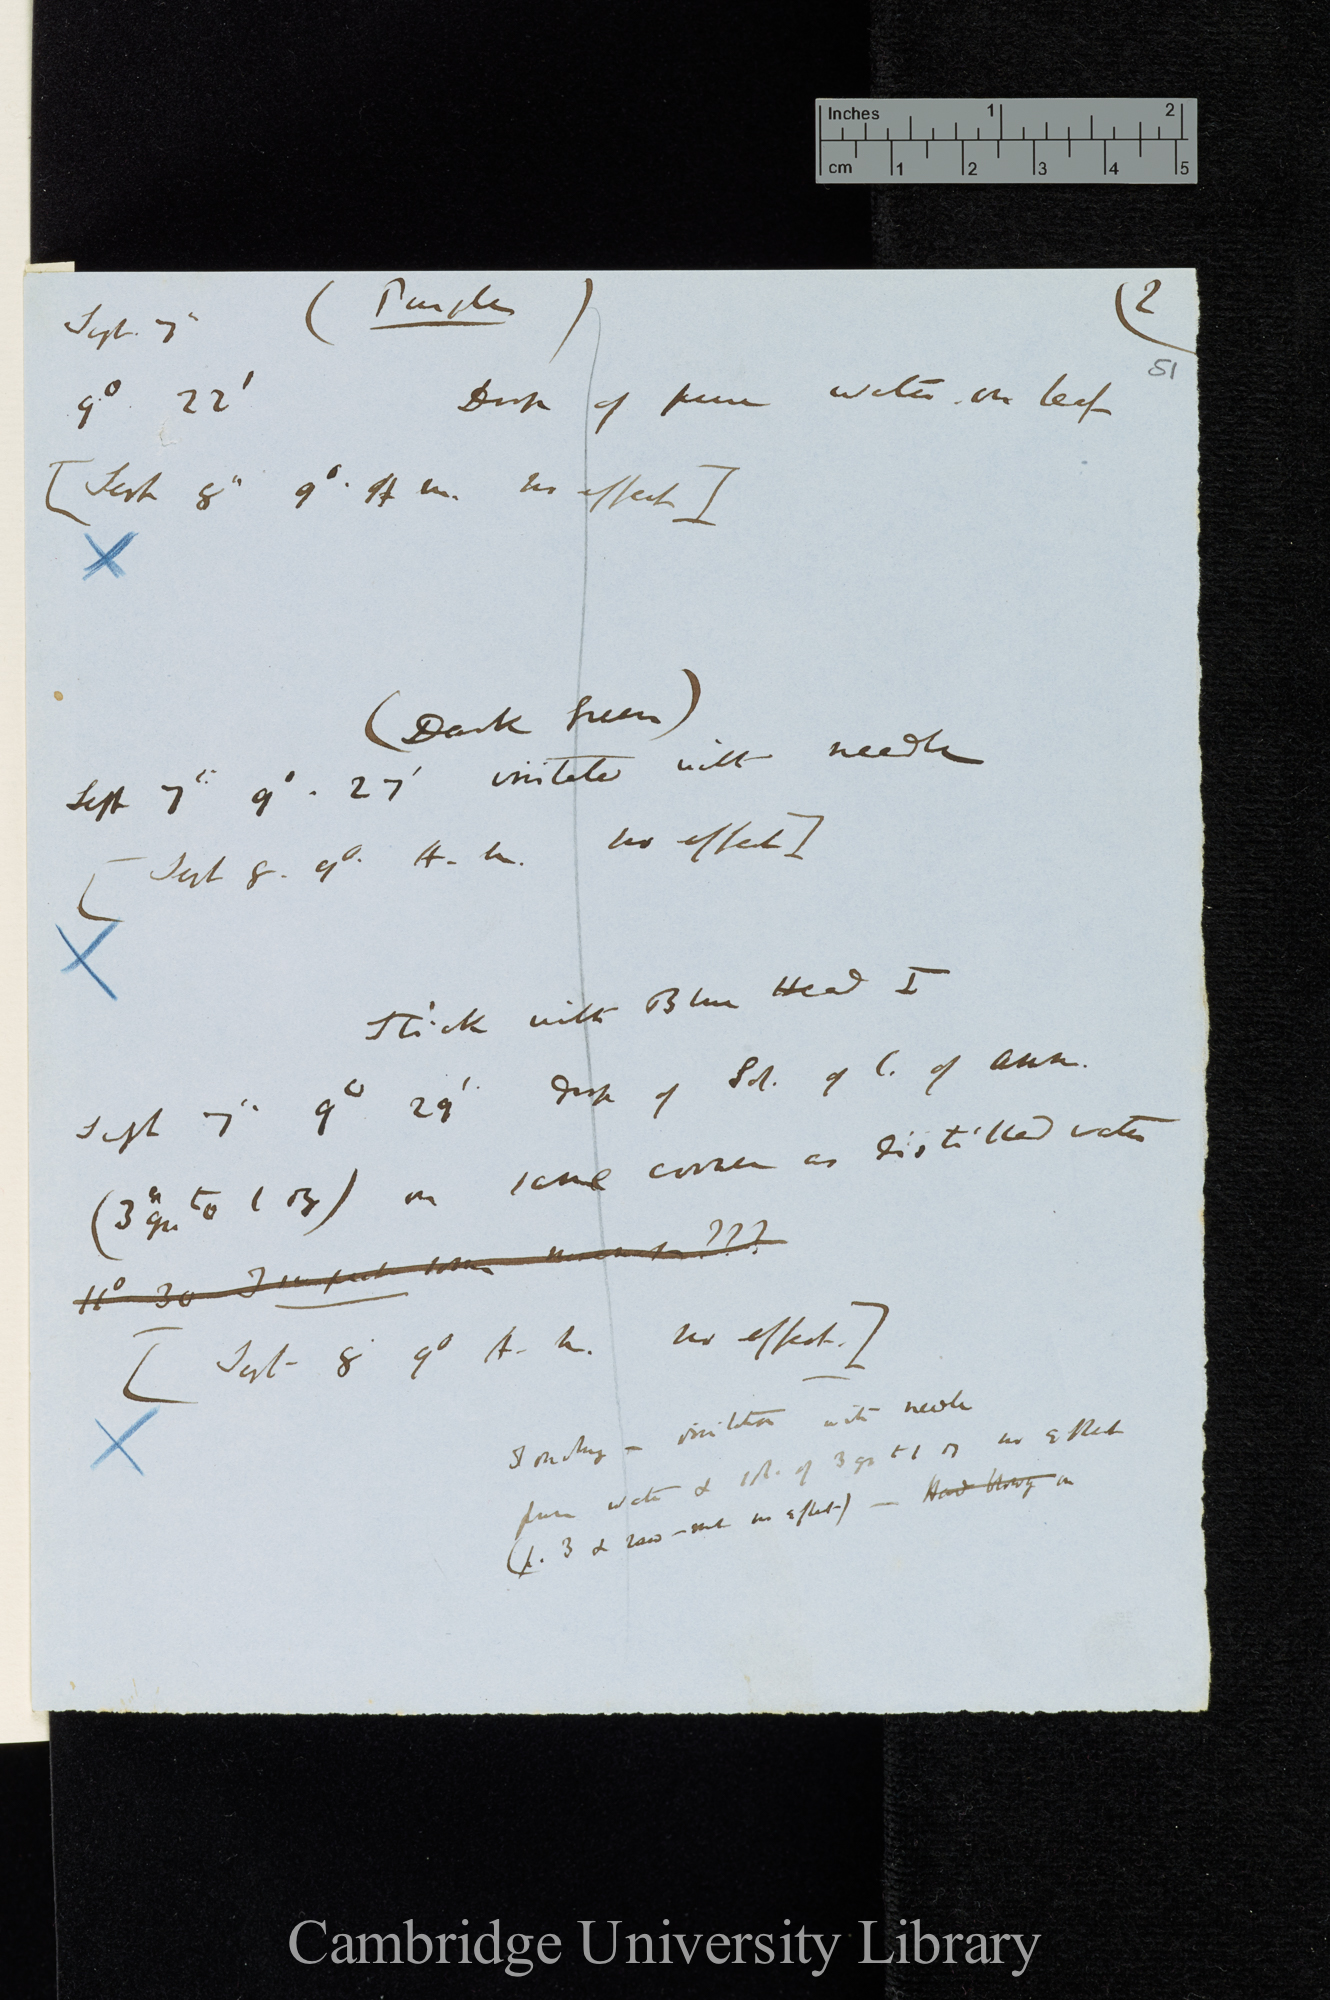 Inches 1 2
cm 1 2 3 4 5
Sept. 7" (Purple) (2
51
9° 22' Drop of pure water on leaf
[Sept 8" 9° A m. no effect]
(Dark Green)
Sept 7" 9°. 27' irritated with needle
[Sept 8. 9° A. m. no effect]
Stick with Blue Head I
Sept 7" 9° 29' drop of Sol. of C. of Amm.
(3 grs to 1 oz) on same corner as distilled water
11° 30 I suspect some movement ???
[Sept 8 9° A. m. no effect.]
irritation with needle
pure water & sol. of 3 grs to 1 oz no effect
(p. 3 & raw meat no effect) —
Cambridge University Library